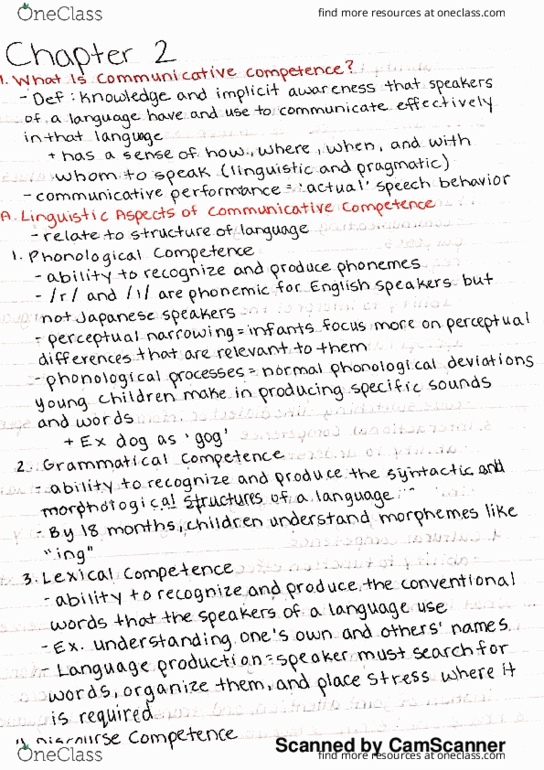 OneClass
find more resources at oneclass.com
Chapter 2
1. What Is Communicative Competence?
- Def: Knowledge and implicit awareness that speakers
of a language have and use to communicate effectively
in that language
+ has a sense of how, where, when, and with
whom to speak (linguistic and pragmatic)
- communicative performance = 'actual' speech behavior
A. Linguistic Aspects of Communicative Competence
- relate to structure of language
1. Phonological Competence
- ability to recognize and produce phonemes
- /r/ and /l/ are phonemic for English speakers but
not Japanese speakers
- perceptual narrowing = infants focus more on perceptual
differences that are relevant to them
- phonological processes = normal phonological deviations
young children make in producing specific sounds
and words
+ Ex dog as 'gog'
2. Grammatical Competence
- ability to recognize and produce the syntactic and
morphological structures of a language
- By 18 months, children understand morphemes like
"ing"
3. Lexical Competence
- ability to recognize and produce the conventional
words that the speakers of a language use
- Ex. understanding one's own and others' names
- Language production = speaker must search for
words, organize them, and place stress where it
is required
4. Discourse Competence
OneClass
Scanned by CamScanner
find more resources at oneclass.com